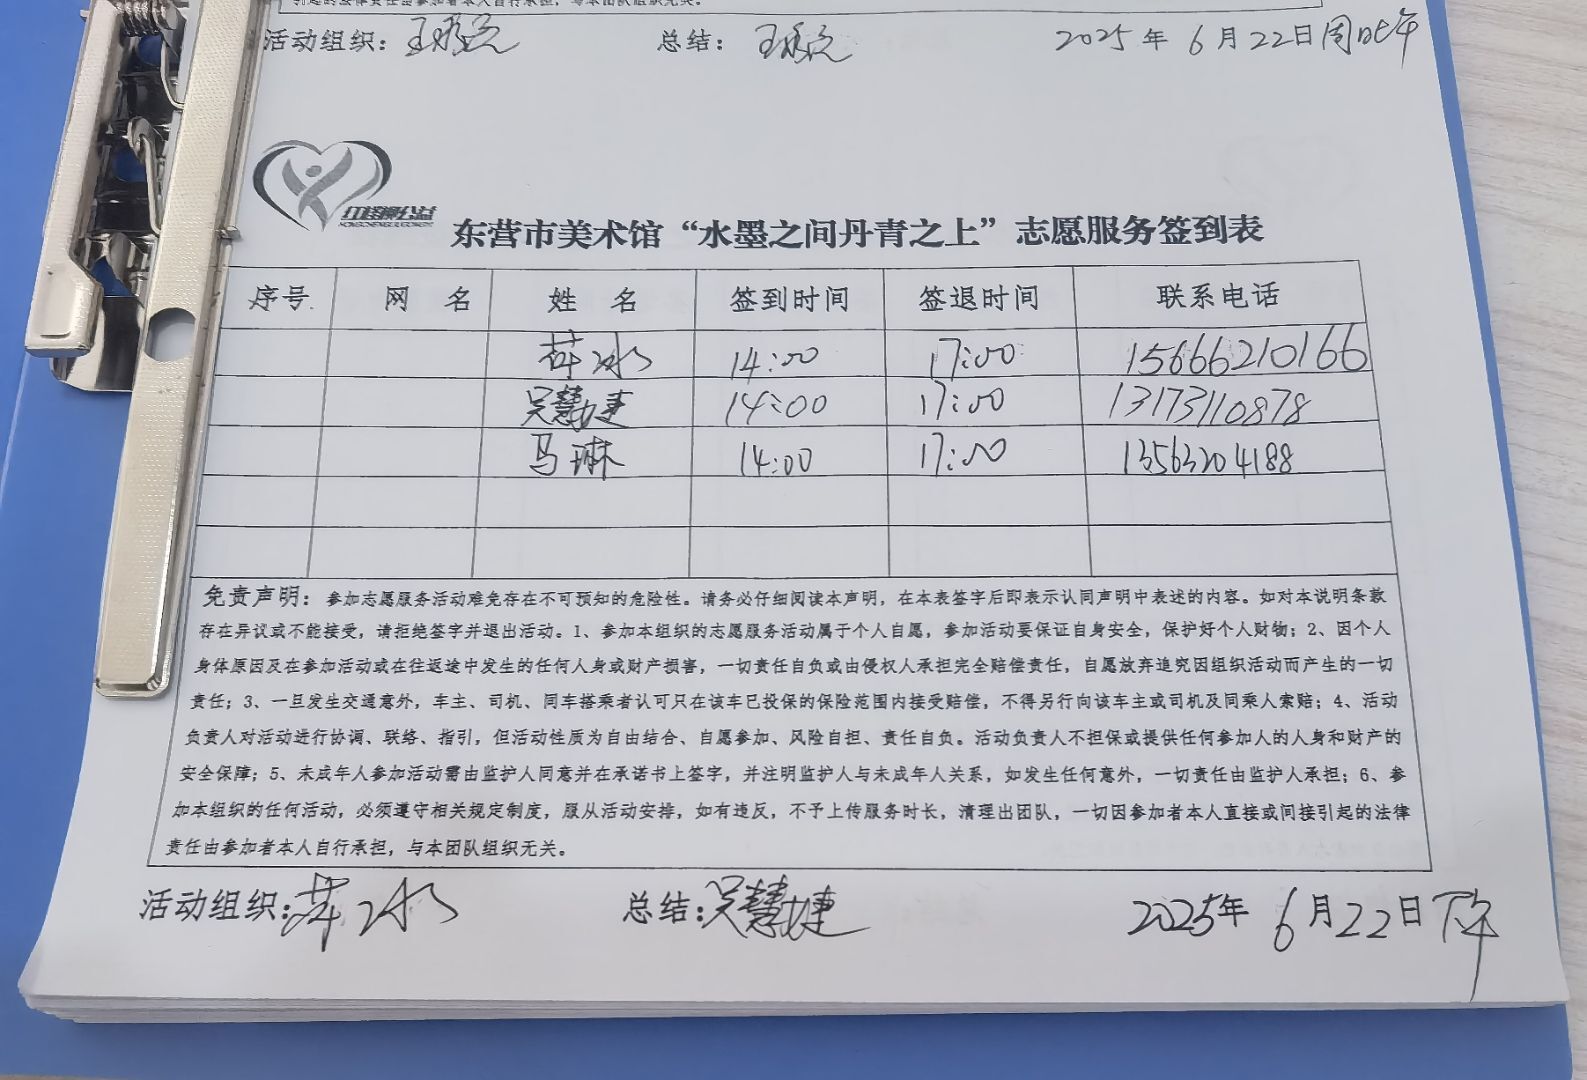 活动组织: 总结: 2025年6月22日周日上午
红诚公益
东营市美术馆“水墨之间丹青之上”志愿服务签到表
序号 网 名 姓 名 签到时间 签退时间 联系电话
萍水 14:00 17:00 15666210166
吴慧婕 14:00 17:00 13173110878
马琳 14:00 17:00 13563204188
免责声明：参加志愿服务活动难免存在不可预知的危险性。请务必仔细阅读本声明，在本表签字后即表示认同声明中表述的内容。如对本说明条款
存在异议或不能接受，请拒绝签字并退出活动。1、参加本组织的志愿服务活动属于个人自愿，参加活动要保证自身安全，保护好个人财物；2、因个人
身体原因及在参加活动或在往返途中发生的任何人身或财产损害，一切责任自负或由侵权人承担完全赔偿责任，自愿放弃追究因组织活动而产生的一切
责任；3、一旦发生交通意外，车主、司机、同车搭乘者认可只在该车已投保的保险范围内接受赔偿，不得另行向该车主或司机及同乘人索赔；4、活动
负责人对活动进行协调、联络、指引，但活动性质为自由结合、自愿参加、风险自担、责任自负。活动负责人不担保或提供任何参加人的人身和财产的
安全保障；5、未成年人参加活动需由监护人同意并在承诺书上签字，并注明监护人与未成年人关系，如发生任何意外，一切责任由监护人承担；6、参
加本组织的任何活动，必须遵守相关规定制度，服从活动安排，如有违反，不予上传服务时长，清理出团队，一切因参加者本人直接或间接引起的法律
责任由参加者本人自行承担，与本团队组织无关。
活动组织:萍水 总结:吴慧婕 2025年6月22日下午